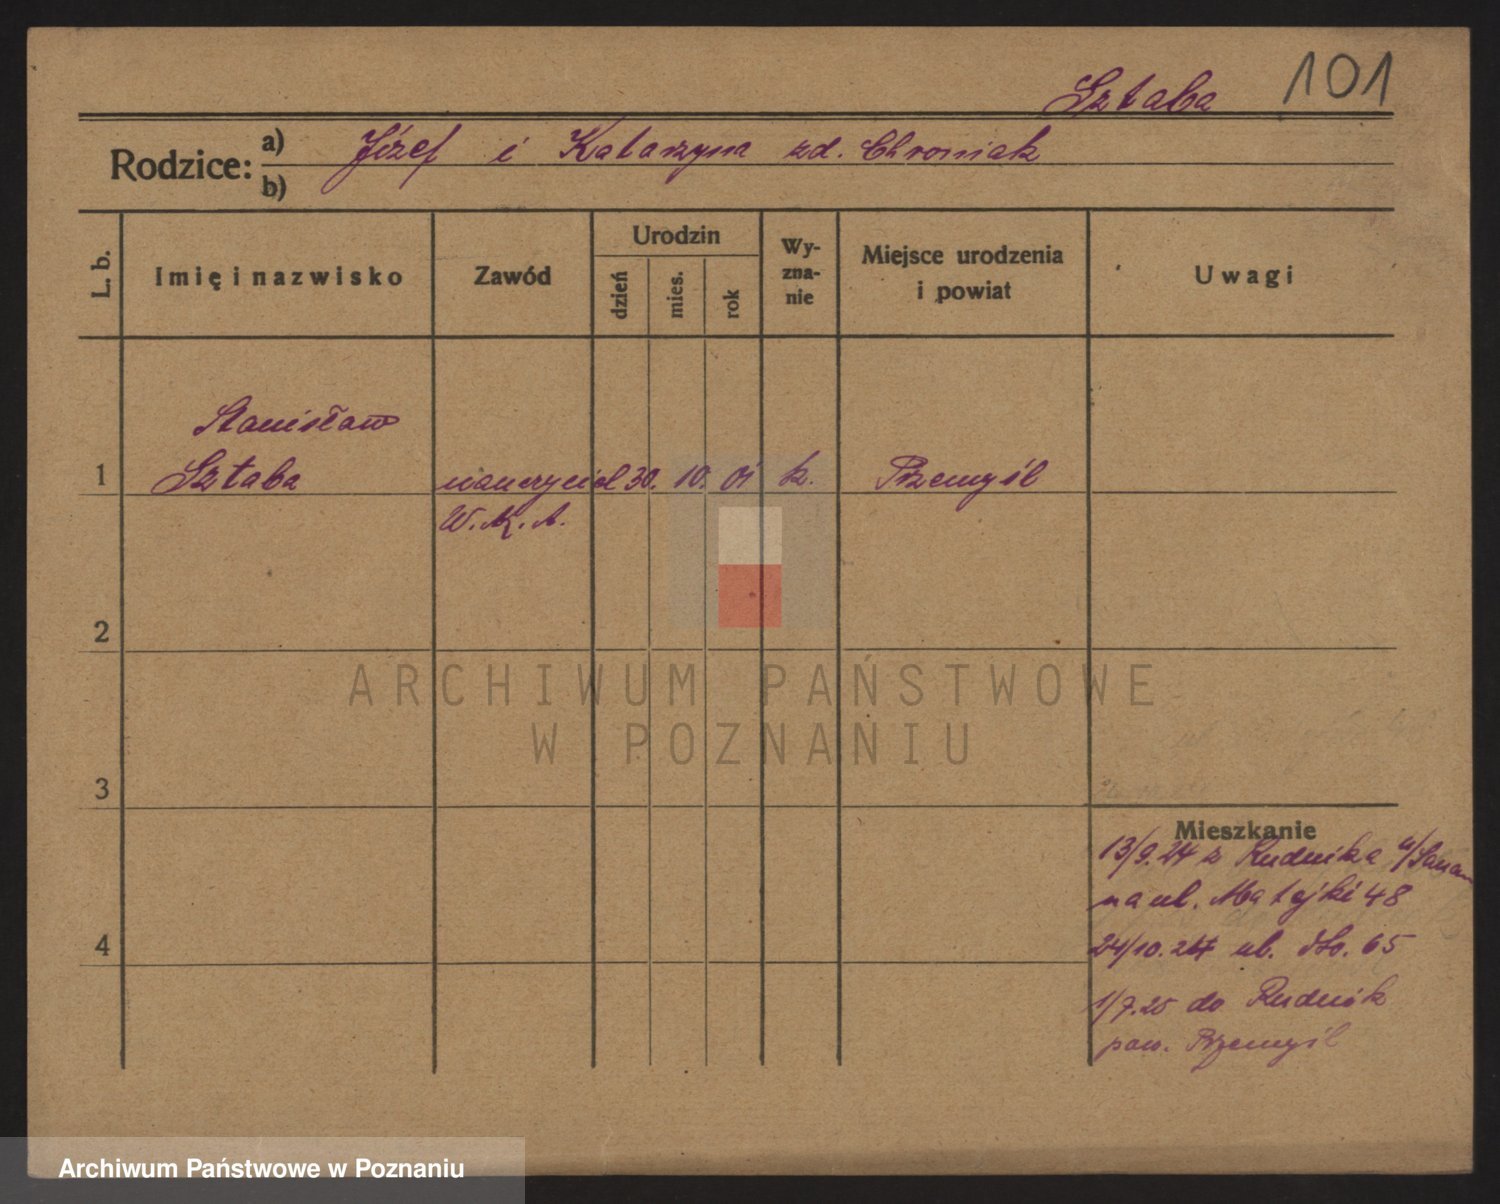 Sztaba 101
Rodzice: a) Józef i Katarzyna zd. Chroniak
b)
L. b.
Imię i nazwisko
Zawód
Urodzin
dzień
mies.
rok
Wy-
zna-
nie
Miejsce urodzenia
i powiat
Uwagi
Stanisław
1 Sztaba nauczyciel 30. 10. 01 k. Przemyśl
W. K. A.
2
ARCHIWUM PAŃSTWOWE
W POZNANIU
3
Mieszkanie
13/9.24 z Rudnika n/Sanem
na ul. Matejki 48
4 24/10.24 ul. dto. 65
1/7.25 do Rudnik
pow. Przemyśl
Archiwum Państwowe w Poznaniu